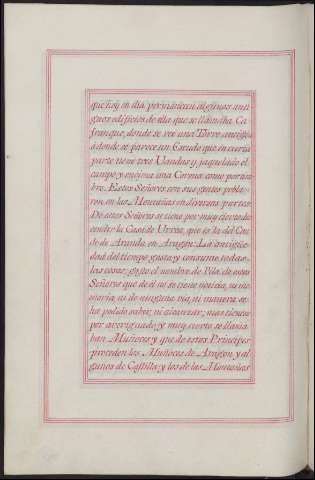 que hay en ella permanecen algunos anti
guos edificios de ella que se llamaba Ca
franque, donde se vee una Torre antigua
a donde se parece un Escudo que en cierta
parte tiene tres Vandas y jaquelado el
campo y encima una Corona como por tim
bre. Estos Señores con sus gentes pobla
ron, en las Montañas en diversas partes
De estos Señores se tiene por muy cierto de
cendir la Casa de Urrea, que es la del Con
de de Aranda, en Aragon. La antigüe
dad del tiempo gasta y consume todas
las cosas; gastó el nombre de Pila de estos
Señores que de el no se tiene noticia, ni me
moria, ni de ninguna via, ni manera se
ha podido saber, ni alcanzar; mas tienese
por averiguado, y muy cierto se llama
ban Muñozes y que de estos Principes
proceden los Muñoces de Aragon, y al
gunos de Castilla, y los de las Montañas